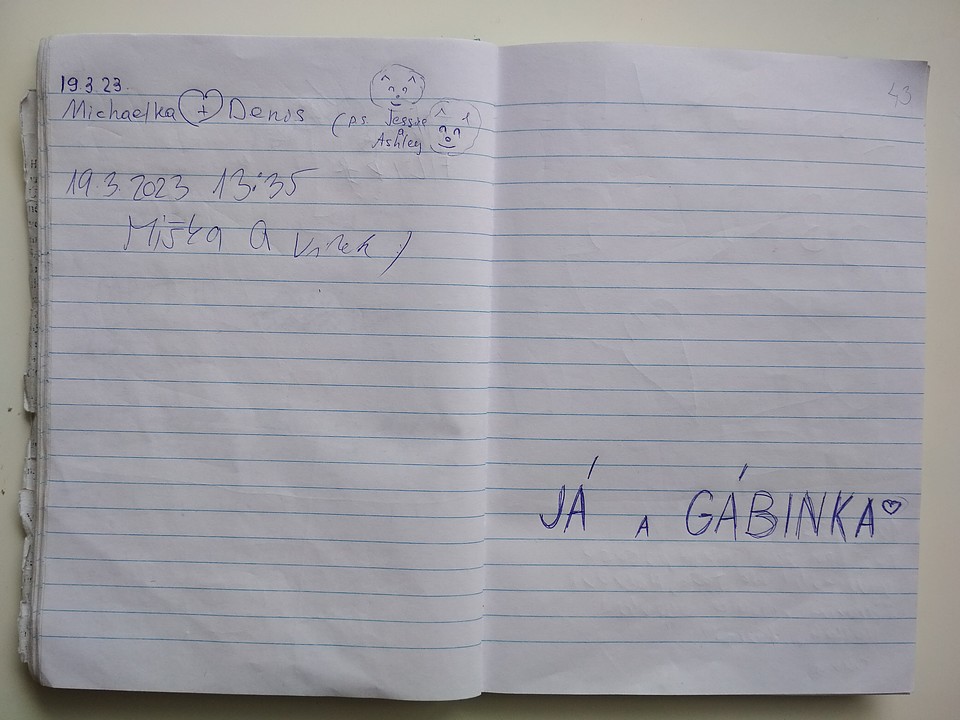 19.3.23.
Michaelka + Denis (ps. Jessie
a
Ashley
19.3.2023 13:35
Miška a Vítek
43
JÁ A GÁBINKA